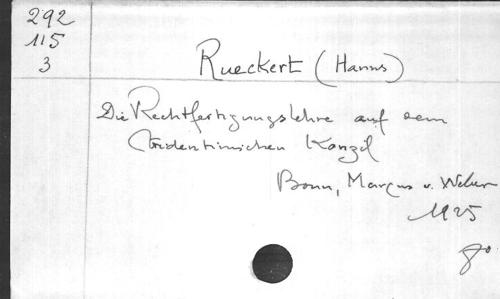 292
115
3
Rueckert (Hanns)
Die Rechtfertigungslehre auf dem
Tridentinischen Konzil
Bonn, Marcus u. Weber
1925
8°